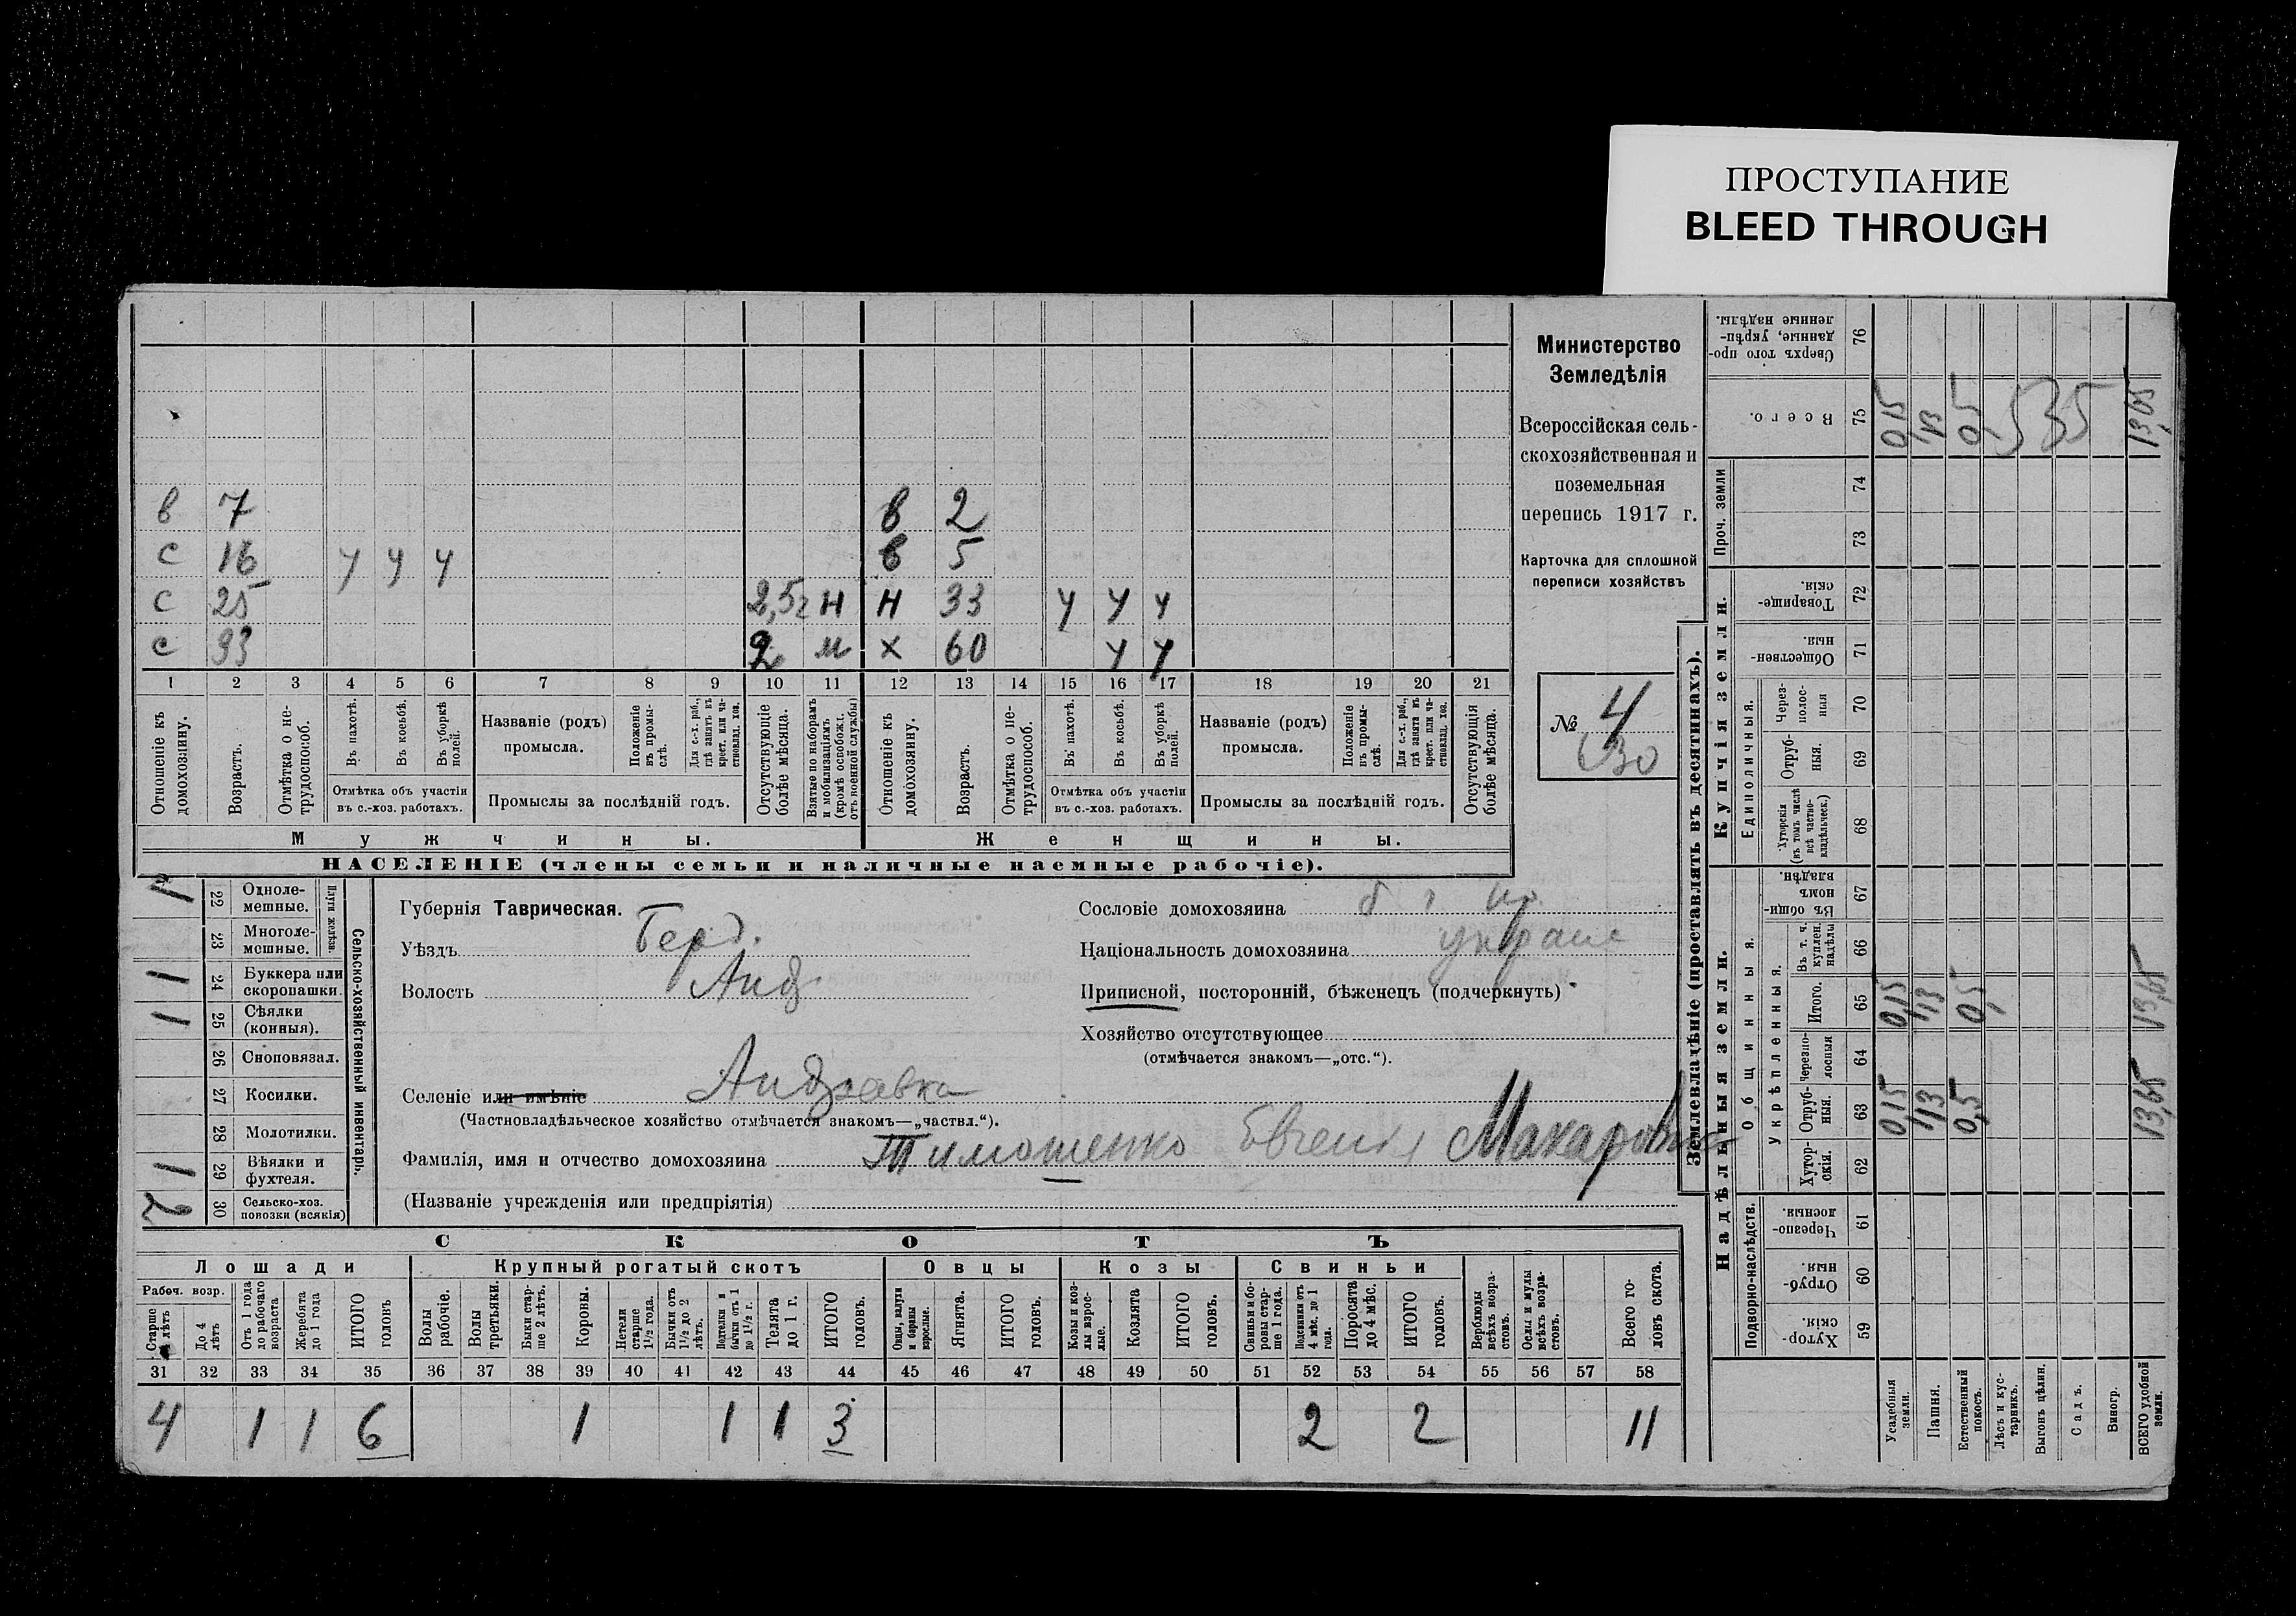 ПРОСТУПАНИЕ
BLEED THROUGH
Министерство
Земледѣлія
Всероссійская сель-
скохозяйственная и
поземельная
перепись 1917 г.
Карточка для сплошной
переписи хозяйствъ
№ 4
в 7 в 2
с 16 у у у в 5
с 25 2,5г н н 33 у у у
с 33 2 м х 60 у у
1 2 3 4 5 6 7 8 9 10 11 12 13 14 15 16 17 18 19 20 21
Отношеніе къ домохозяину.
Возрастъ.
Отмѣтка о не-трудоспособ.
Въ пахотѣ.
Въ косьбѣ.
Въ уборкѣ полей.
Отмѣтка объ участіи
въ с.-хоз. работахъ.
Названіе (родъ)
промысла.
Положеніе въ промы-слѣ.
Для с.-х. раб., гдѣ занятъ въ крест. или ча-стновлад. хоз.
Промыслы за послѣдній годъ.
Отсутствующіе болѣе мѣсяца.
Взятые по наборамъ и мобилизаціямъ (кромѣ освобожд. отъ военной службы)
Отношеніе къ домохозяину.
Возрастъ.
Отмѣтка о не-трудоспособ.
Въ пахотѣ.
Въ косьбѣ.
Въ уборкѣ полей.
Отмѣтка объ участіи
въ с.-хоз. работахъ.
Названіе (родъ)
промысла.
Положеніе въ промы-слѣ.
Для с.-х. раб., гдѣ занятъ въ крест. или ча-стновлад. хоз.
Промыслы за послѣдній годъ.
Отсутствующія болѣе мѣсяца.
Мужчины. Женщины.
НАСЕЛЕНІЕ (члены семьи и наличные наемные рабочіе).
Сельско-хозяйственный инвентарь.
Плуги желѣзн.
1 22 Одноле-мешные.
23 Многоле-мешные.
1 24 Буккера или скоропашки.
1 25 Сѣялки (конныя).
26 Сноповязал.
27 Косилки.
28 Молотилки.
1 29 Вѣялки и фухтеля.
2 30 Сельско-хоз. повозки (всякія)
Губернія Таврическая.
Уѣздъ Берд.
Волость Анд
Селеніе или имѣніе Андреевка
(Частновладѣльческое хозяйство отмѣчается знакомъ—„частвл.“).
Фамилія, имя и отчество домохозяина Тимошенко Евгенія Макаровна
(Названіе учрежденія или предпріятія)
Сословіе домохозяина
Національность домохозяина
Приписной, посторонній, бѣженец (подчеркнуть)
Хозяйство отсутствующее
(отмѣчается знакомъ—„отс.“).
СКОТЪ
Лошади Крупный рогатый скотъ Овцы Козы Свиньи
Рабоч. возр.
Старше 4 лѣтъ
До 4 лѣтъ
Отъ 1 года до рабочаго возраста
Жеребята до 1 года
ИТОГО головъ
Волы рабочіе.
Волы третьяки.
Быки стар-ше 2 лѣтъ.
Коровы.
Нетели старше 1½ года.
Бычки отъ 1½ до 2 лѣтъ.
Подтелки и бычки отъ 1 до 1½ г.
Телята до 1 г.
ИТОГО головъ.
Овцы, валухи и бараны взрослые.
Ягнята.
ИТОГО головъ.
Козы и коз-лы взрос-лые.
Козлята
ИТОГО головъ.
Свиньи и бо-ровы стар-ше 1 года.
Подсвинки отъ 4 мѣс. до 1 года.
Поросята до 4 мѣс.
ИТОГО головъ.
Верблюды всѣхъ возра-стовъ.
Ослы и мулы всѣхъ возра-стовъ.
Всего го-ловъ скота.
31 32 33 34 35 36 37 38 39 40 41 42 43 44 45 46 47 48 49 50 51 52 53 54 55 56 57 58
4 1 1 6 1 1 1 3 2 2 11
Землевладѣніе (проставлять въ десятинахъ).
Надѣльныя земли. Купчія земли. Проч. земли
Подворно-наслѣдств.
Общинныя.
Укрѣпленныя.
Единоличныя.
59 Хутор-скія.
60 Отруб-ныя.
61 Черезпо-лосныя.
62 Хутор-скія.
63 Отруб-ныя.
64 Черезпо-лосныя
65 Итого.
66 Въ т. ч. куплен. надѣлы
67 Въ общин-номъ владѣн.
68 Хуторскія (въ томъ числѣ всѣ частно-владѣльческ.)
69 Отруб-ныя.
70 Через-полос-ныя
71 Обществен-ныя.
72 Товарище-скія.
73
74
75 Всего.
76 Сверхъ того про-данные, укрѣп-ленные надѣлы.
Усадебныя земли. 0,15 0,15 0,15
Пашня. 13 13 13
Естественный покосъ. 0,5 0,5 0,5
Лѣсъ и кус-тарникъ.
Выгонъ цѣлин.
Садъ.
Виногр.
ВСЕГО удобной земли. 13,65 13,65 13,65
535